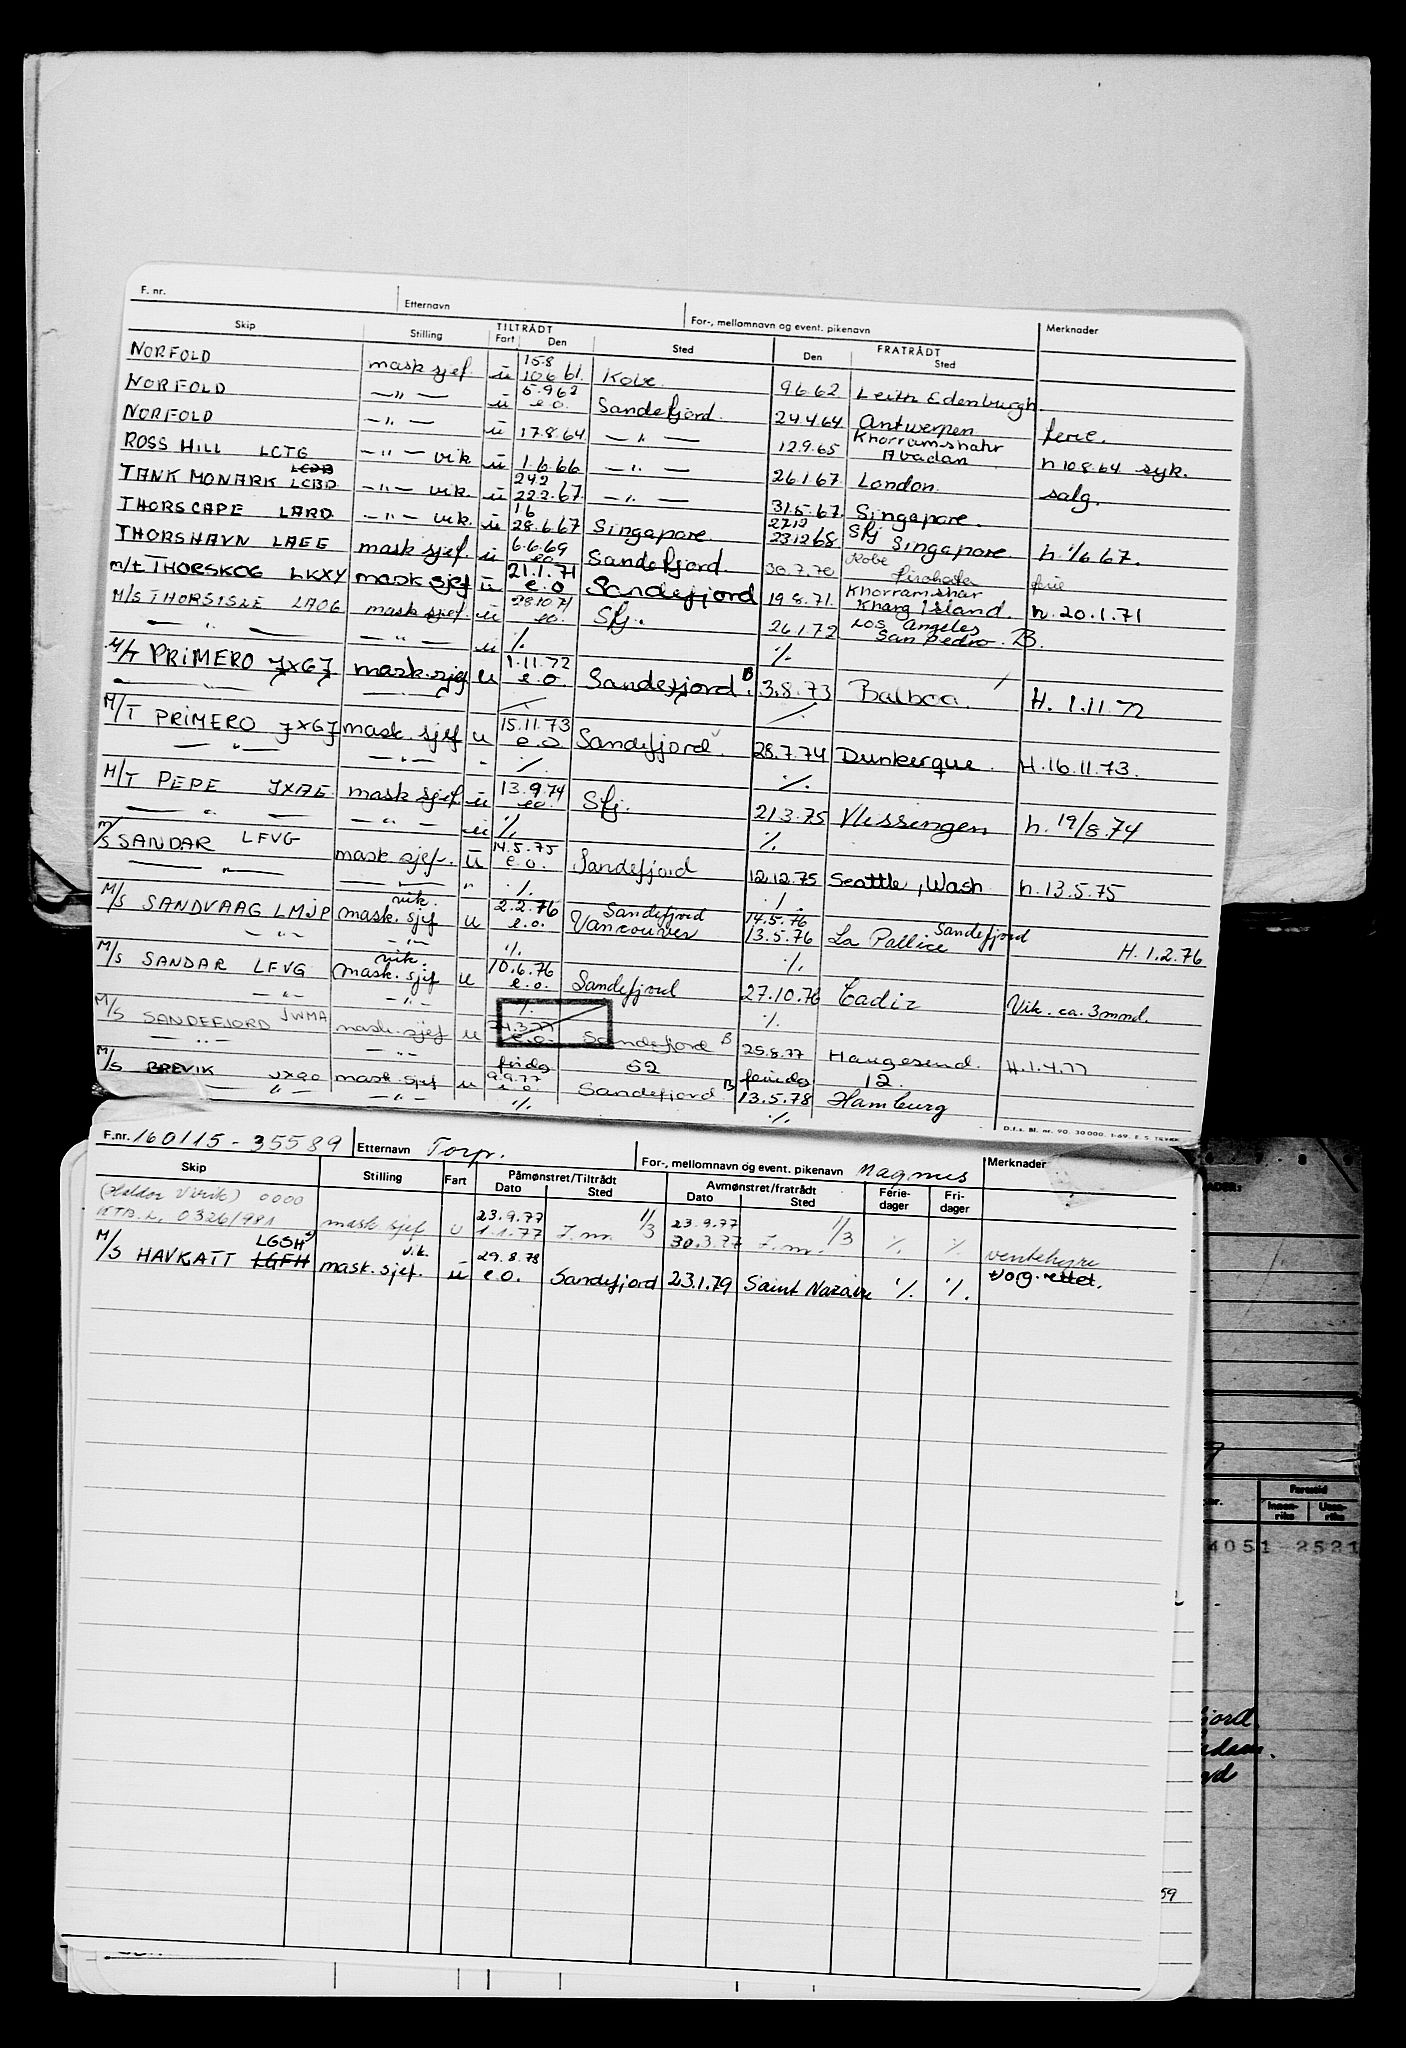 F. nr. Etternavn For-, mellomnavn og event. pikenavn Merknader
Skip Stilling TILTRÅDT Fart Den Sted FRATRÅDT Den Sted
NORFOLD mask sjef. ü 15.8 10.6 61. Kobe. 9662 Leith Edenburgh
NORFOLD —"— ü 5.9.62 e.o. Sandefjord. 24.4.64 Antwerpen ferie.
NORFOLD —"— ü 17.8.64 —"— 12.9.65 Khorramshahr Abadan h 10864 syk.
ROSS HILL LCTG —"— vik ü 1.6.66 —"— 26.1.67 London. salg.
TANK MONARK LCBD —"— vik. ü 24.2 22.2.67. —"— 31.5.67. Singapore.
THORSCAPE LARD —"— vik. ü 1.6 28.6.67 Singapore 27.12 23.12.68 Sfj Singapore h 1/6 67.
THORSHAVN LAEE mask sjef. ü 6.6.69 e.o. Sandefjord. 30.7.70 Kobe ferie
m/t THORSKOG LKXY mask sjef ü 21.1.71 e.o Sandefjord 19.8.71. Khorramshar Kharg Island. h. 20.1.71
M/S THORSISLE LAOG mask sjef. ü 28.10.71 e.o. Sfj. 26.1.72 Los Angeles San Pedro. B.
—"— —"— ü %. %
M/T PRIMERO JXGJ mask.sjef u 1.11.72 e.o. Sandefjord B. 3.8.73 Balboa. H. 1.11.72
—"— —"— % %
M/T PRIMERO JXGJ mask. sjef u 15.11.73 e.o Sandefjord 28.7.74 Dunkerque. H.16.11.73.
—"— —"— " %. %.
M/T PEPE JXAE mask sjef ü 13.9.74 e.o. Sfj. 21.3.75 Vlissingen h. 19/8.74
—"— —"— ü %. %
M/S SANDAR LFVG mask sjef. ü 14.5.75 e.o. Sandefjord 12.12.75 Seattle, Wash. h. 13.5.75
—"— —"— " %. %.
M/S SANDVAAG LMJP vik. mask. sjef u 2.2.76 e.o. Sandefjord Vancouver 14.5.76 13.5.76 Sandefjord La Pallice H. 1.2.76
—"— —"— %. %.
M/S SANDAR LFVG vik. mask. sjef u 10.6.76 e.o. Sandefjord 27.10.76 Cadiz Vik. ca. 3 mnd.
—"— —"— %. %
M/S SANDEFJORD JWMA mask. sjef u e.o. Sandefjord B 25.8.77 Haugesund. H.1.4.77
—"— —"— 52 12.
M/S BREVIK JXQO mask. sjef u 9.9.77 e.o Sandefjord B 13.5.78 Hamburg
—"— —"— %. %.
D.f.s. Bl. nr. 90. 30000. 1-69. E.S. TRYKK
F.nr. 160115-35589 Etternavn Torp. For-, mellomnavn og event. pikenavn Magnus Merknader
Skip Stilling Fart Påmønstret/Tiltrådt Dato Sted Avmønstret/fratrådt Dato Sted Ferie-dager Fri-dager
(Haldor Virik) 0000
0326/981 mask sjef u 23.9.77 1.1.77 J.m. 1/3 23.9.77 30.3.77 J.m. 1/3 %. %. ventehyre
M/S HAVKATT LGSH LGFH mask. sjef. vik. ü 29.8.78 e.o. Sandefjord 23.1.79 Saint Nazaire %. %. vog. rettet.
Fartstid
Innen-riks Uten-riks
4051-2521
fjord
59